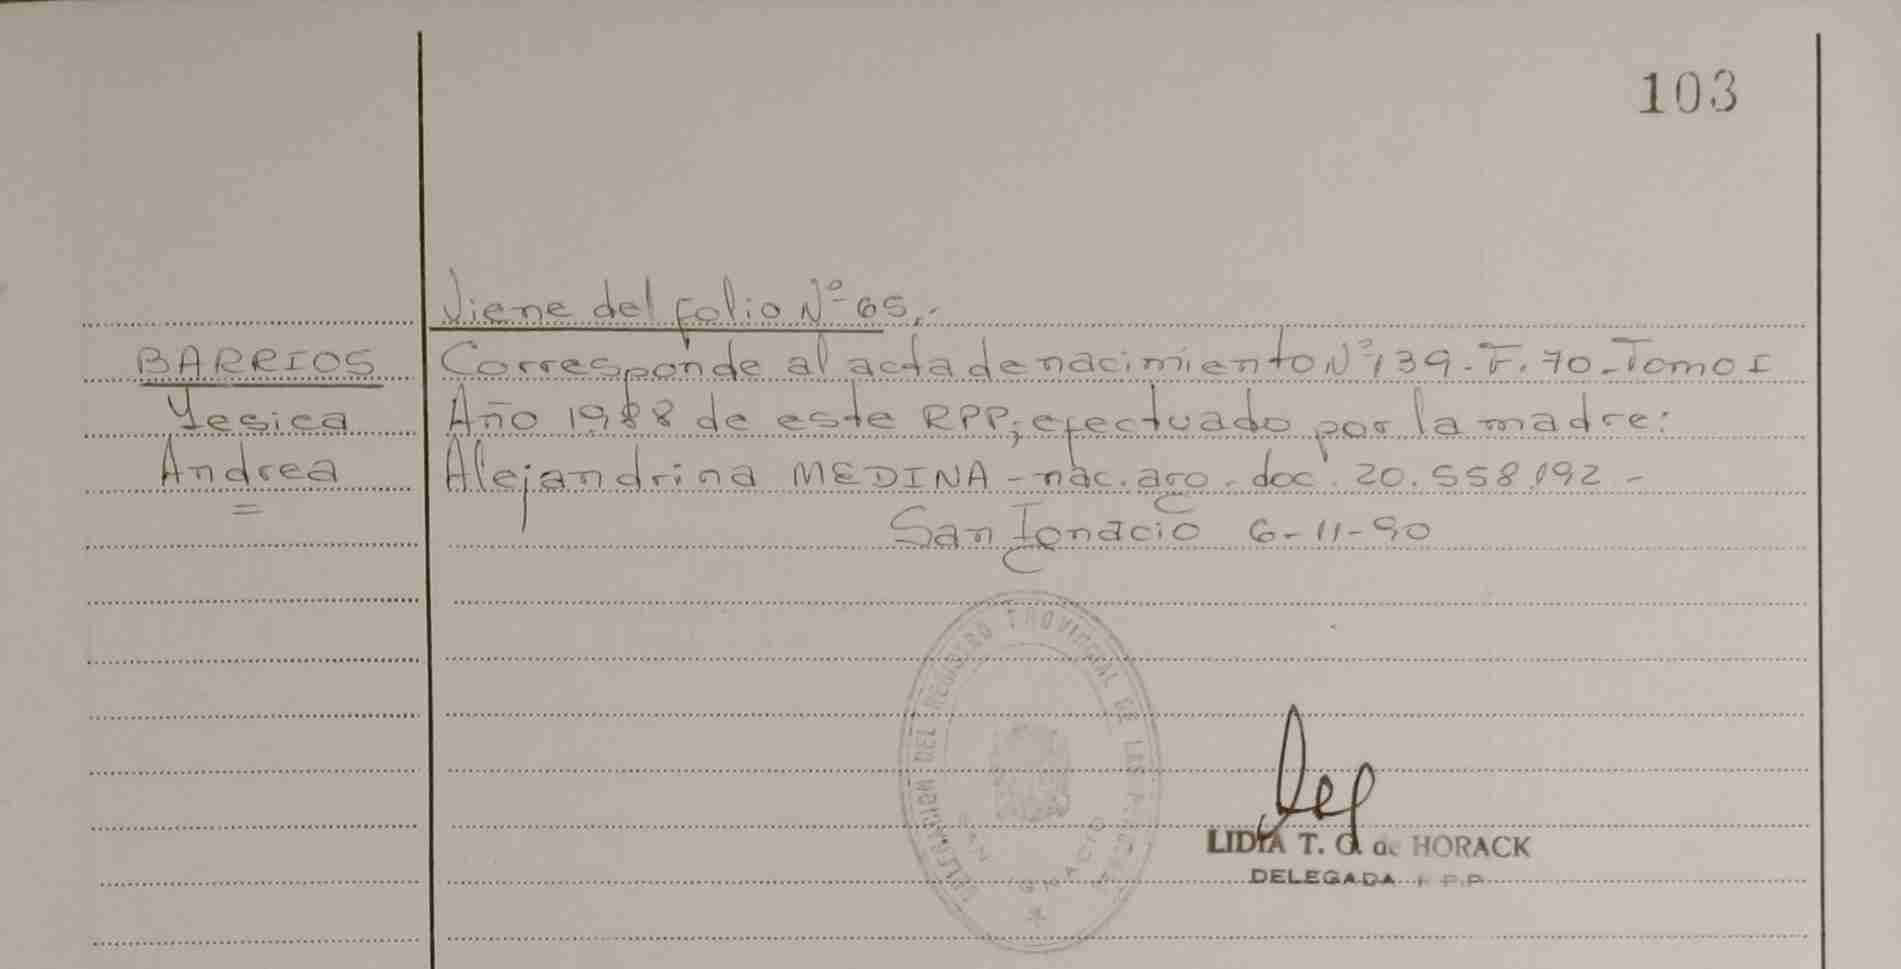 103
Viene del folio Nº 65.-
BARRIOS Corresponde al acta de nacimiento Nº 139. F. 70 - Tomo I
Yesica Año 1988 de este RPP; efectuado por la madre:
Andrea Alejandrina MEDINA - nac. arg. doc. 20.558.192 -
=
San Ignacio 6-11-90
DELEGACION DEL REGISTRO PROVINCIAL DE LAS PERSONAS
SAN IGNACIO
LIDIA T. G. de HORACK
DELEGADA R.P.P.